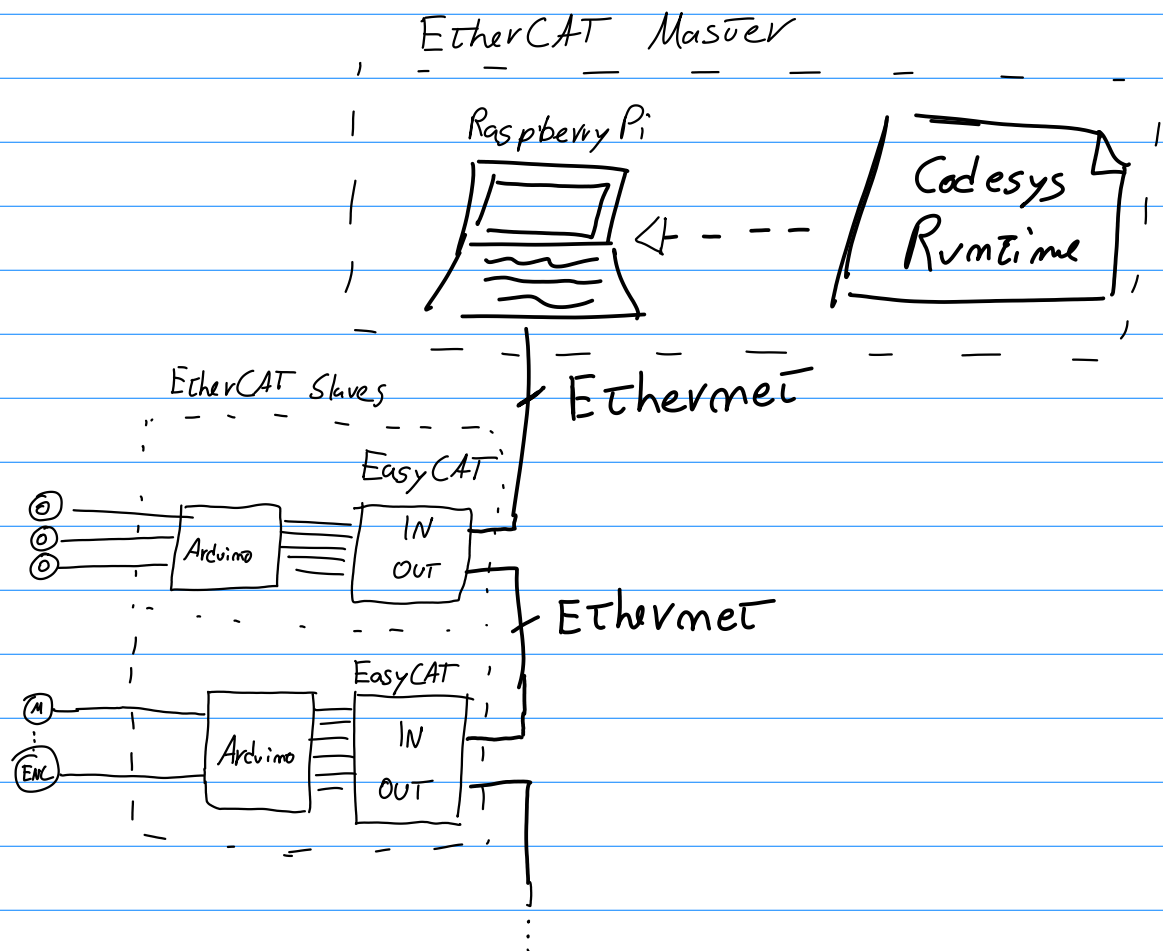 EtherCAT Master
Raspberry Pi
Codesys
Runtime
Ethernet
EtherCAT Slaves
EasyCAT
IN
Arduino
OUT
Ethernet
EasyCAT
M
IN
Arduino
ENC
OUT